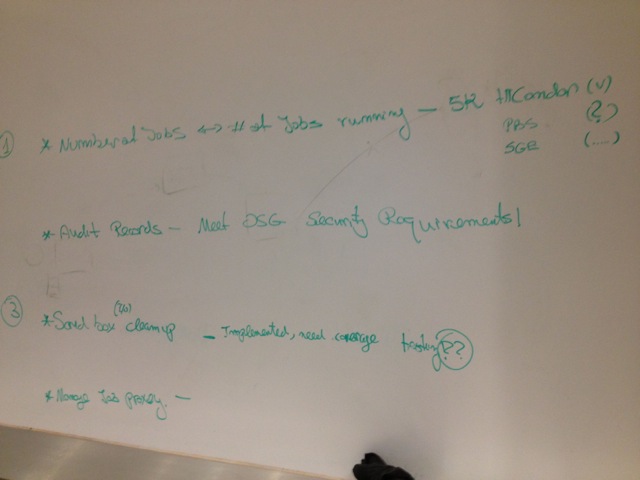 ① * Number of Jobs <-> # of Jobs running — 5k HTCondor (v)
PBS (?)
SGE (....)
* Audit Records - Meet OSG Security Requirements!
③ * Sand box cleanup - Implemented, need coverage testing ??
* Manage Job proxy. -